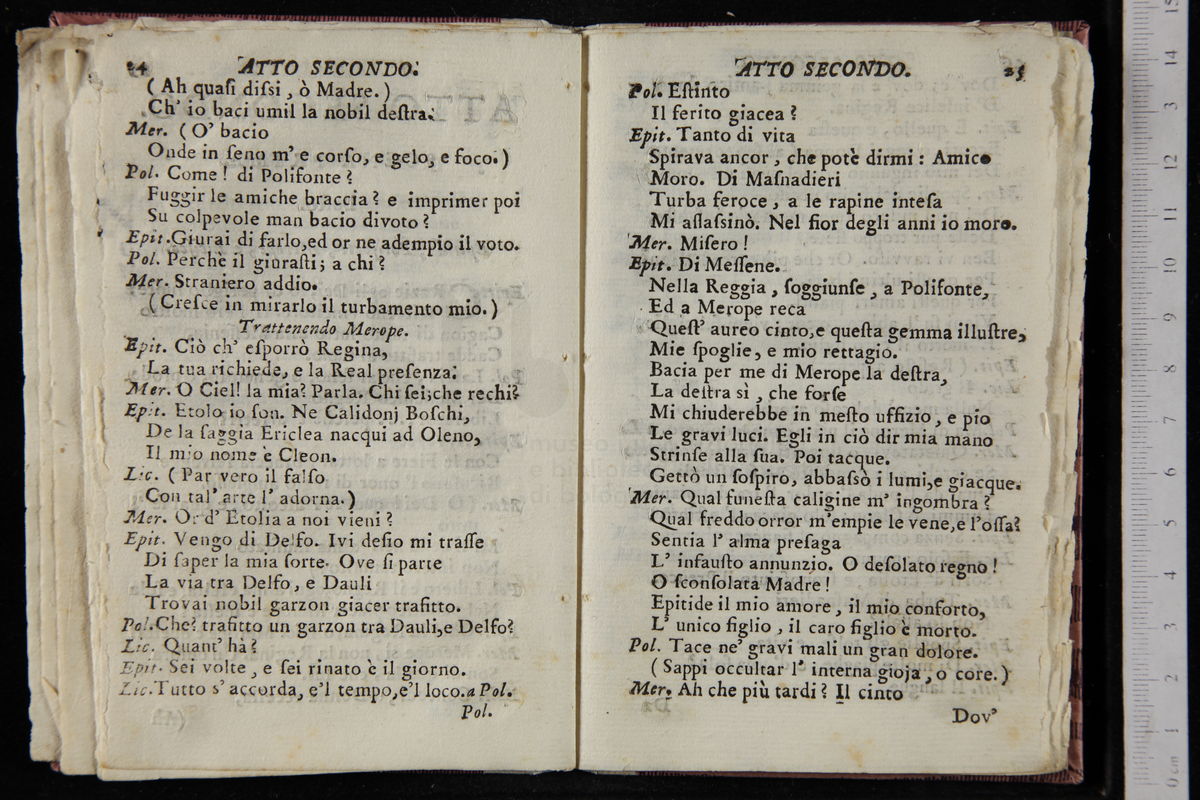 24 ATTO SECONDO.
( Ah quaſi diſsi , ò Madre. )
Ch' io baci umil la nobil deſtra.
Mer. ( O' bacio
Onde in ſeno m' e corſo, e gelo, e foco. )
Pol. Come ! di Polifonte ?
Fuggir le amiche braccia ? e imprimer poi
Su colpevole man bacio divoto ?
Epit.Giurai di farlo,ed or ne adempio il voto.
Pol. Perchè il giuraſti ; a chi ?
Mer. Straniero addio.
( Creſce in mirarlo il turbamento mio. )
Trattenendo Merope.
Epit. Ciò ch' eſporrò Regina,
La tua richiede, e la Real preſenza.
Mer. O Ciel! la mia? Parla. Chi ſei;che rechi?
Epit. Etolo io ſon. Ne Calidonj Boſchi,
De la ſaggia Ericlea nacqui ad Oleno,
Il mio nome e Cleon.
Lic. ( Par vero il falſo
Con tal' arte l' adorna. )
Mer. Or d' Etolia a noi vieni ?
Epit. Vengo di Delfo. Ivi deſio mi traſſe
Di ſaper la mia ſorte. Ove ſi parte
La via tra Delfo, e Dauli
Trovai nobil garzon giacer trafitto.
Pol.Che? trafitto un garzon tra Dauli,e Delfo?
Lic. Quant' hà ?
Epit. Sei volte , e ſei rinato è il giorno.
Lic.Tutto s' accorda, e'l tempo,e'l loco.a Pol.
Pol.
ATTO SECONDO. 25
Pol. Eſtinto
Il ferito giacea ?
Epit. Tanto di vita
Spirava ancor , che potè dirmi : Amico
Moro. Di Maſnadieri
Turba feroce , a le rapine inteſa
Mi aſſaſsinò. Nel fior degli anni io moro.
Mer. Miſero !
Epit. Di Meſſene.
Nella Reggia , ſoggiunſe , a Polifonte,
Ed a Merope reca
Queſt' aureo cinto,e queſta gemma illuſtre,
Mie ſpoglie, e mio rettagio.
Bacia per me di Merope la deſtra,
La deſtra sì , che forſe
Mi chiuderebbe in meſto uffizio, e pio
Le gravi luci. Egli in ciò dir mia mano
Strinſe alla ſua. Poi tacque.
Gettò un ſoſpiro, abbaſsò i lumi,e giacque.
Mer. Qual funeſta caligine m' ingombra ?
Qual freddo orror m'empie le vene,e l'oſſa?
Sentia l' alma preſaga
L' infauſto annunzio. O deſolato regno !
O ſconſolata Madre !
Epitide il mio amore, il mio conforto,
L' unico figlio , il caro figlio è morto.
Pol. Tace ne' gravi mali un gran dolore.
( Sappi occultar l' interna gioja , o core. )
Mer. Ah che più tardi ? Il cinto
Dov'